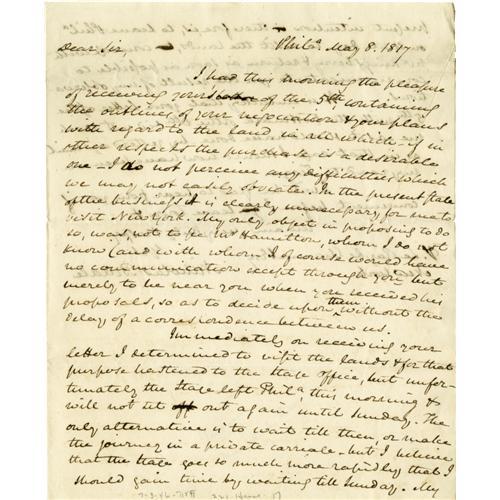 Dear Sir, Phila. May 8. 1817
I had this morning the pleasure
of receiving yours of the 5th containing
the outlines of your negociation & your plans
with regard to the land in all which - if in
other respects the purchase is a desirable
one - I do not perceive any difficulties which
we may not easily obviate. In the present state
of the business it is clearly unnecessary for me to
visit New York. My only object in proposing to do
so, was not to see Mr Hamilton, whom I do not
know (and with whom I of course would have
no communication except through you) but
merely to be near you when you received his
proposals, so as to decide upon them, without the
delay of a correspondence between us.
Immediately on receiving your
letter I determined to visit the lands & for that
purpose hastened to the Stage office, but unfor-
tunately the Stage left Phila. this morning &
will not set out again until Sunday. The
only alternative is to wait till then, or make
the journey in a private carriage - but I believe
that the Stage goes so much more rapidly that I
should gain time by waiting till Sunday. My